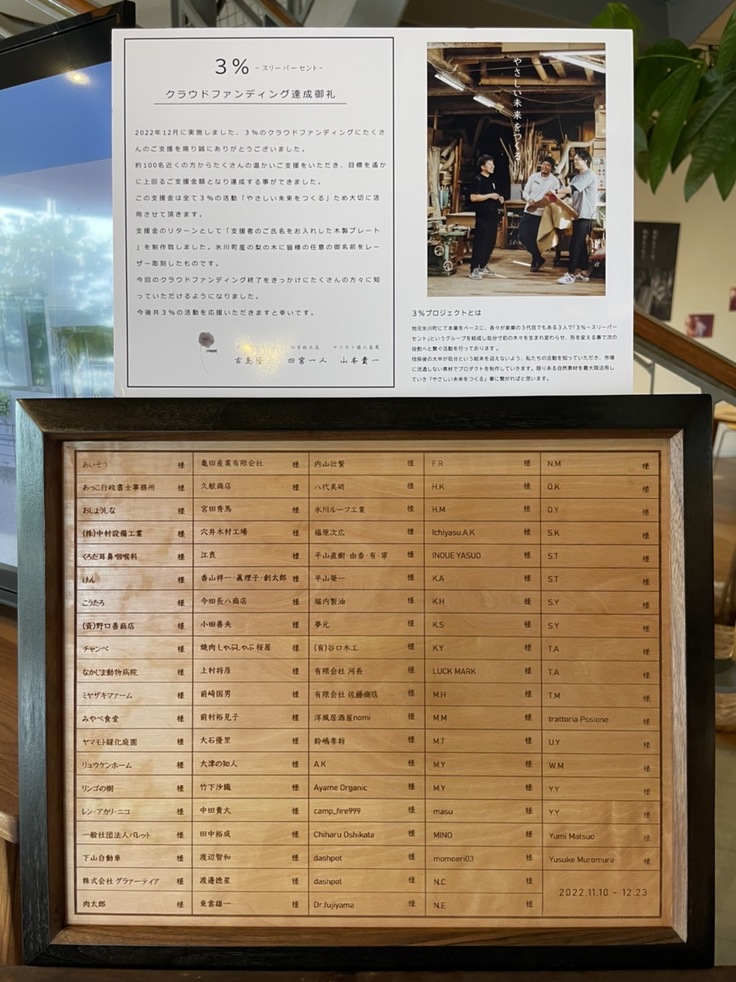 3% -スリーパーセント-
クラウドファンディング達成御礼
2022年12月に実施しました、3%のクラウドファンディングにたくさ
んのご支援を賜り誠にありがとうございました。
約100名近くの方からたくさんの温かいご支援をいただき、目標を遥か
に上回るご支援金額となり達成する事ができました。
この支援金は全て3%の活動「やさしい未来をつくる」ため大切に活
用させて頂きます。
支援金のリターンとして「支援者のご氏名をお入れした木製プレート
」を制作致しました。氷川町産の梨の木に皆様の任意の御名前をレー
ザー彫刻したものです。
今回のクラウドファンディング終了をきっかけにたくさんの方々に知
っていただけるようになりました。
今後共3%の活動を応援いただきますと幸いです。
古島隆 田宮一人 山本貴一
やさしい未来をつくる
3%プロジェクトとは
地元氷川町にて本業をベースに、各々が家業の3代目でもある3人で「3%-スリーパー
セント」というグループを結成し処分寸前の木々を生まれ変わらせ、形を変える事で次の
役割へと繋ぐ活動を行っております。
伐採後の大半が処分という結末を迎えないよう、私たちの活動を知っていただき、市場
に流通しない素材でプロダクトを制作していきます。限りある自然素材を最大限活用し
ていき「やさしい未来をつくる」事に繋がればと思います。
あいそう 様 亀田産業有限会社 様 内山壮賢 様 F.R 様 N.M 様
あっこ行政書士事務所 様 久敏商店 様 八代美研 様 H.K 様 O.K 様
おしょうしな 様 宮田秀馬 様 氷川ルーフ工業 様 H.M 様 O.Y 様
(株)中村設備工業 様 穴井木材工場 様 福原次広 様 Ichiyasu.A.K 様 S.K 様
くろだ耳鼻咽喉科 様 江良 様 平山直樹・由香・有・寧 様 INOUE YASUO 様 S.T 様
けん 様 香山祥一・眞理子・創太郎 様 平山榮一 様 K.A 様 S.T 様
こうたろ 様 今田長八商店 様 堀内製油 様 K.H 様 S.Y 様
(資)野口善商店 様 小田善夫 様 夢元 様 K.S 様 S.Y 様
チャンベ 様 焼肉しゃぶしゃぶ 桜屋 様 (有)谷口木工 様 K.Y 様 T.A 様
なかじま動物病院 様 上村将彦 様 有限会社 河長 様 LUCK MARK 様 T.A 様
ミヤザキファーム 様 前崎国男 様 有限会社 佐藤商店 様 M.H 様 T.M 様
みやべ食堂 様 前村裕見子 様 洋風居酒屋nomi 様 M.M 様 trattoria Pssione 様
ヤマモト緑化庭園 様 大石優里 様 鈴嶋孝将 様 M.T 様 U.Y 様
リュウケンホーム 様 大津の知人 様 A.K 様 M.Y 様 W.M 様
リンゴの樹 様 竹下沙織 様 Ayame Organic 様 M.Y 様 Y.Y 様
レン・アカリ・ニコ 様 中田貴大 様 camp_fire999 様 masu 様 Y.Y 様
一般社団法人パレット 様 田中裕成 様 Chiharu Oshikata 様 MINO 様 Yumi Matsuo 様
下山自動車 様 渡辺智和 様 dashpot 様 momoeri03 様 Yusuke Muromura 様
株式会社 グラァーティア 様 渡邊徳星 様 dashpot 様 N.C 様
肉太郎 様 東雲雄一 様 Dr.fujiyama 様 N.E 様 2022.11.10 ~ 12.23